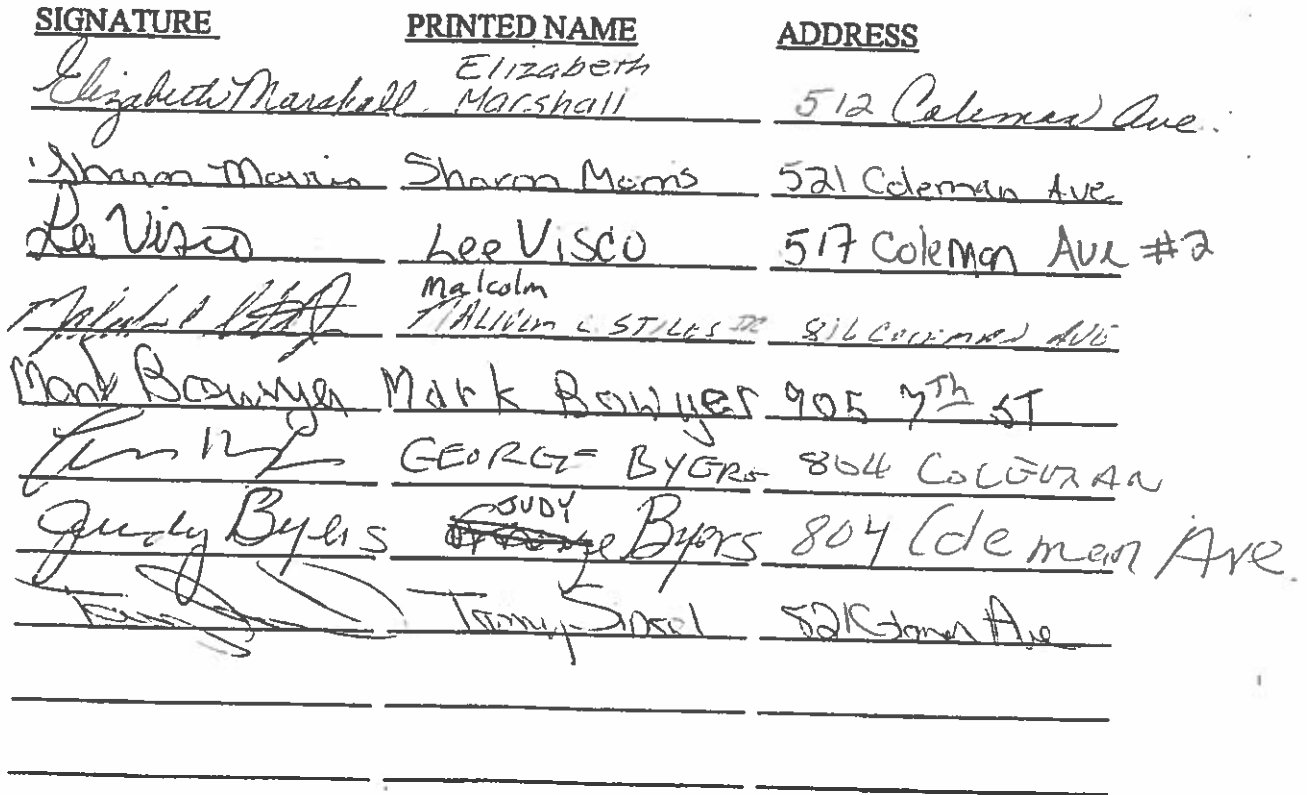 SIGNATURE PRINTED NAME ADDRESS
Elizabeth Marshall Elizabeth Marshall 512 Coleman Ave.
Sharon Morris Sharon Morris 521 Coleman Ave
Lee Visco Lee Visco 517 Coleman Ave #2
Malcolm
MALCOLM L STILES 816 COLEMAN AVE
Mark Bowyer Mark Bowyer 905 7th ST
GEORGE BYERS 804 COLEMAN
JUDY
Judy Byers Byers 804 Coleman Ave
Tammy 521 Ave